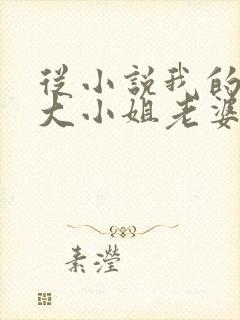 從小說我的
大小姐老婆
素瀅